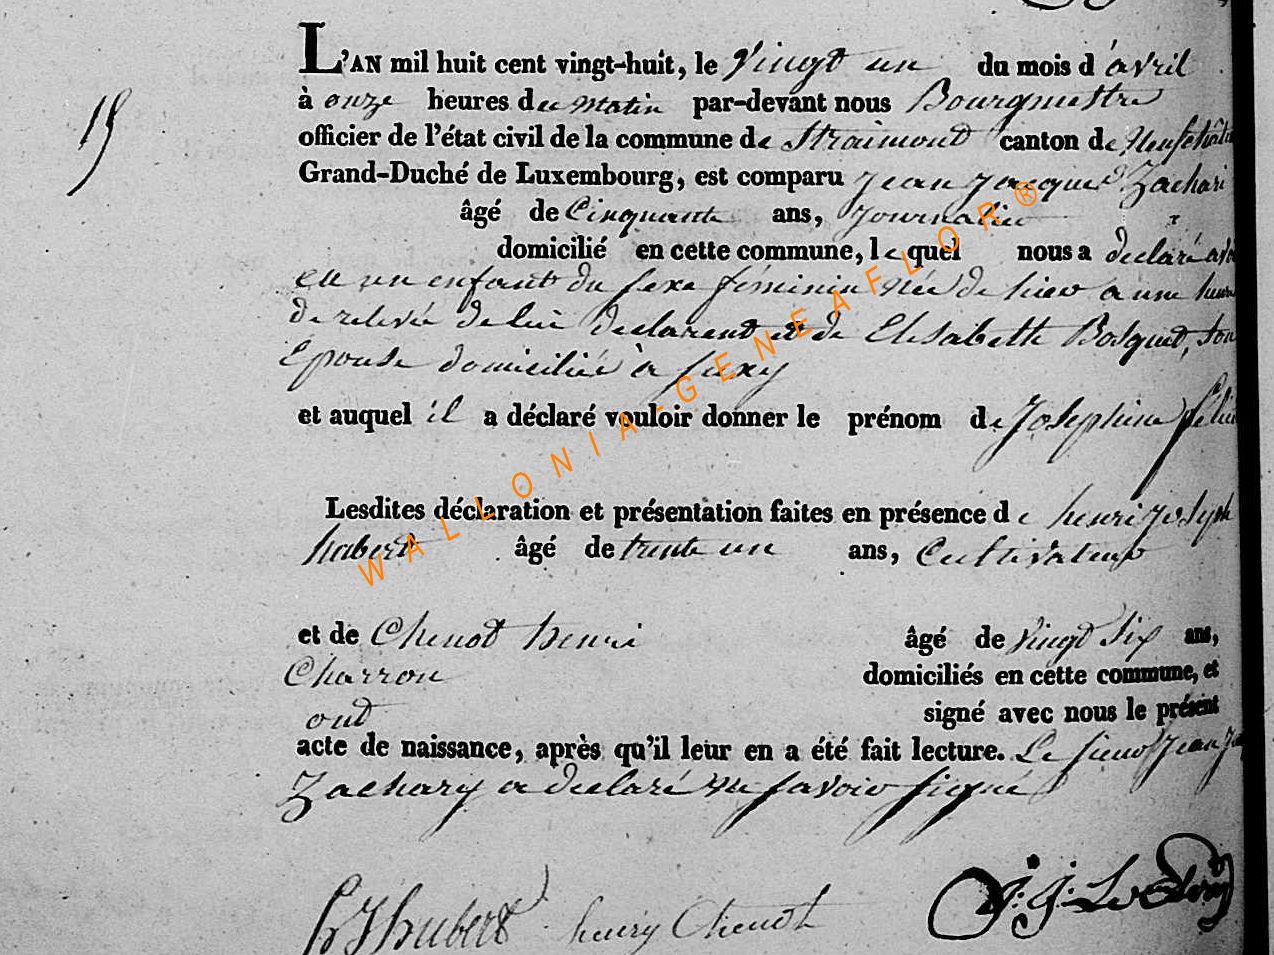 L'AN mil huit cent vingt-huit, le Vingt un du mois d'avril
15
à onze heures du matin par-devant nous Bourgmestre
officier de l'état civil de la commune de Straimont canton de
Grand-Duché de Luxembourg, est comparu Jean Jacques Zachari
âgé de Cinquante ans, Journalier
domicilié en cette commune, lequel nous a déclaré
eu un enfant du sexe féminin née de hier a une
de relevée de lui declarent et de Elisabeth Bosquet, son
Epouse domicilié à suxy
et auquel il a déclaré vouloir donner le prénom de Josephine
Lesdites déclaration et présentation faites en présence de henri Joseph
hubert âgé de trente un ans, Cultivateur
et de Chenot henri âgé de Vingt six ans,
Charron domiciliés en cette commune, et
ont signé avec nous le présent
acte de naissance, après qu'il leur en a été fait lecture. Le sieur Jean
Zachary a declaré ne savoir signé
hJhubert henry Chenot
WALLONIA-GENEAFLOR®